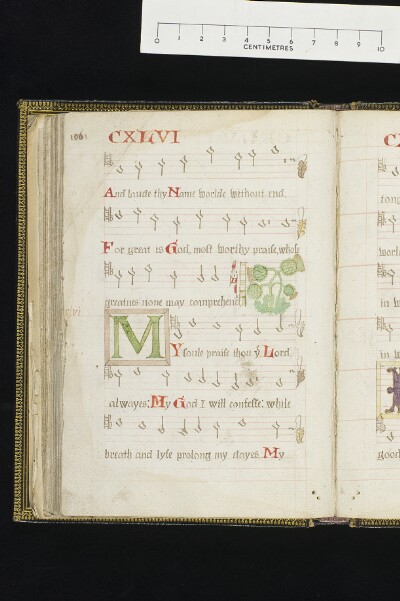 0 1 2 3 4 5 6 7 8 9 10
CENTIMETRES
CXLVI
And laude thy Name worlde without end.
For great is God, most worthy praise, whose
greatnes none may comprehend.
MY soule praise thou yͤ Lord
alwayes: My God I will confesse: while
breath and lyfe prolong my dayes. My